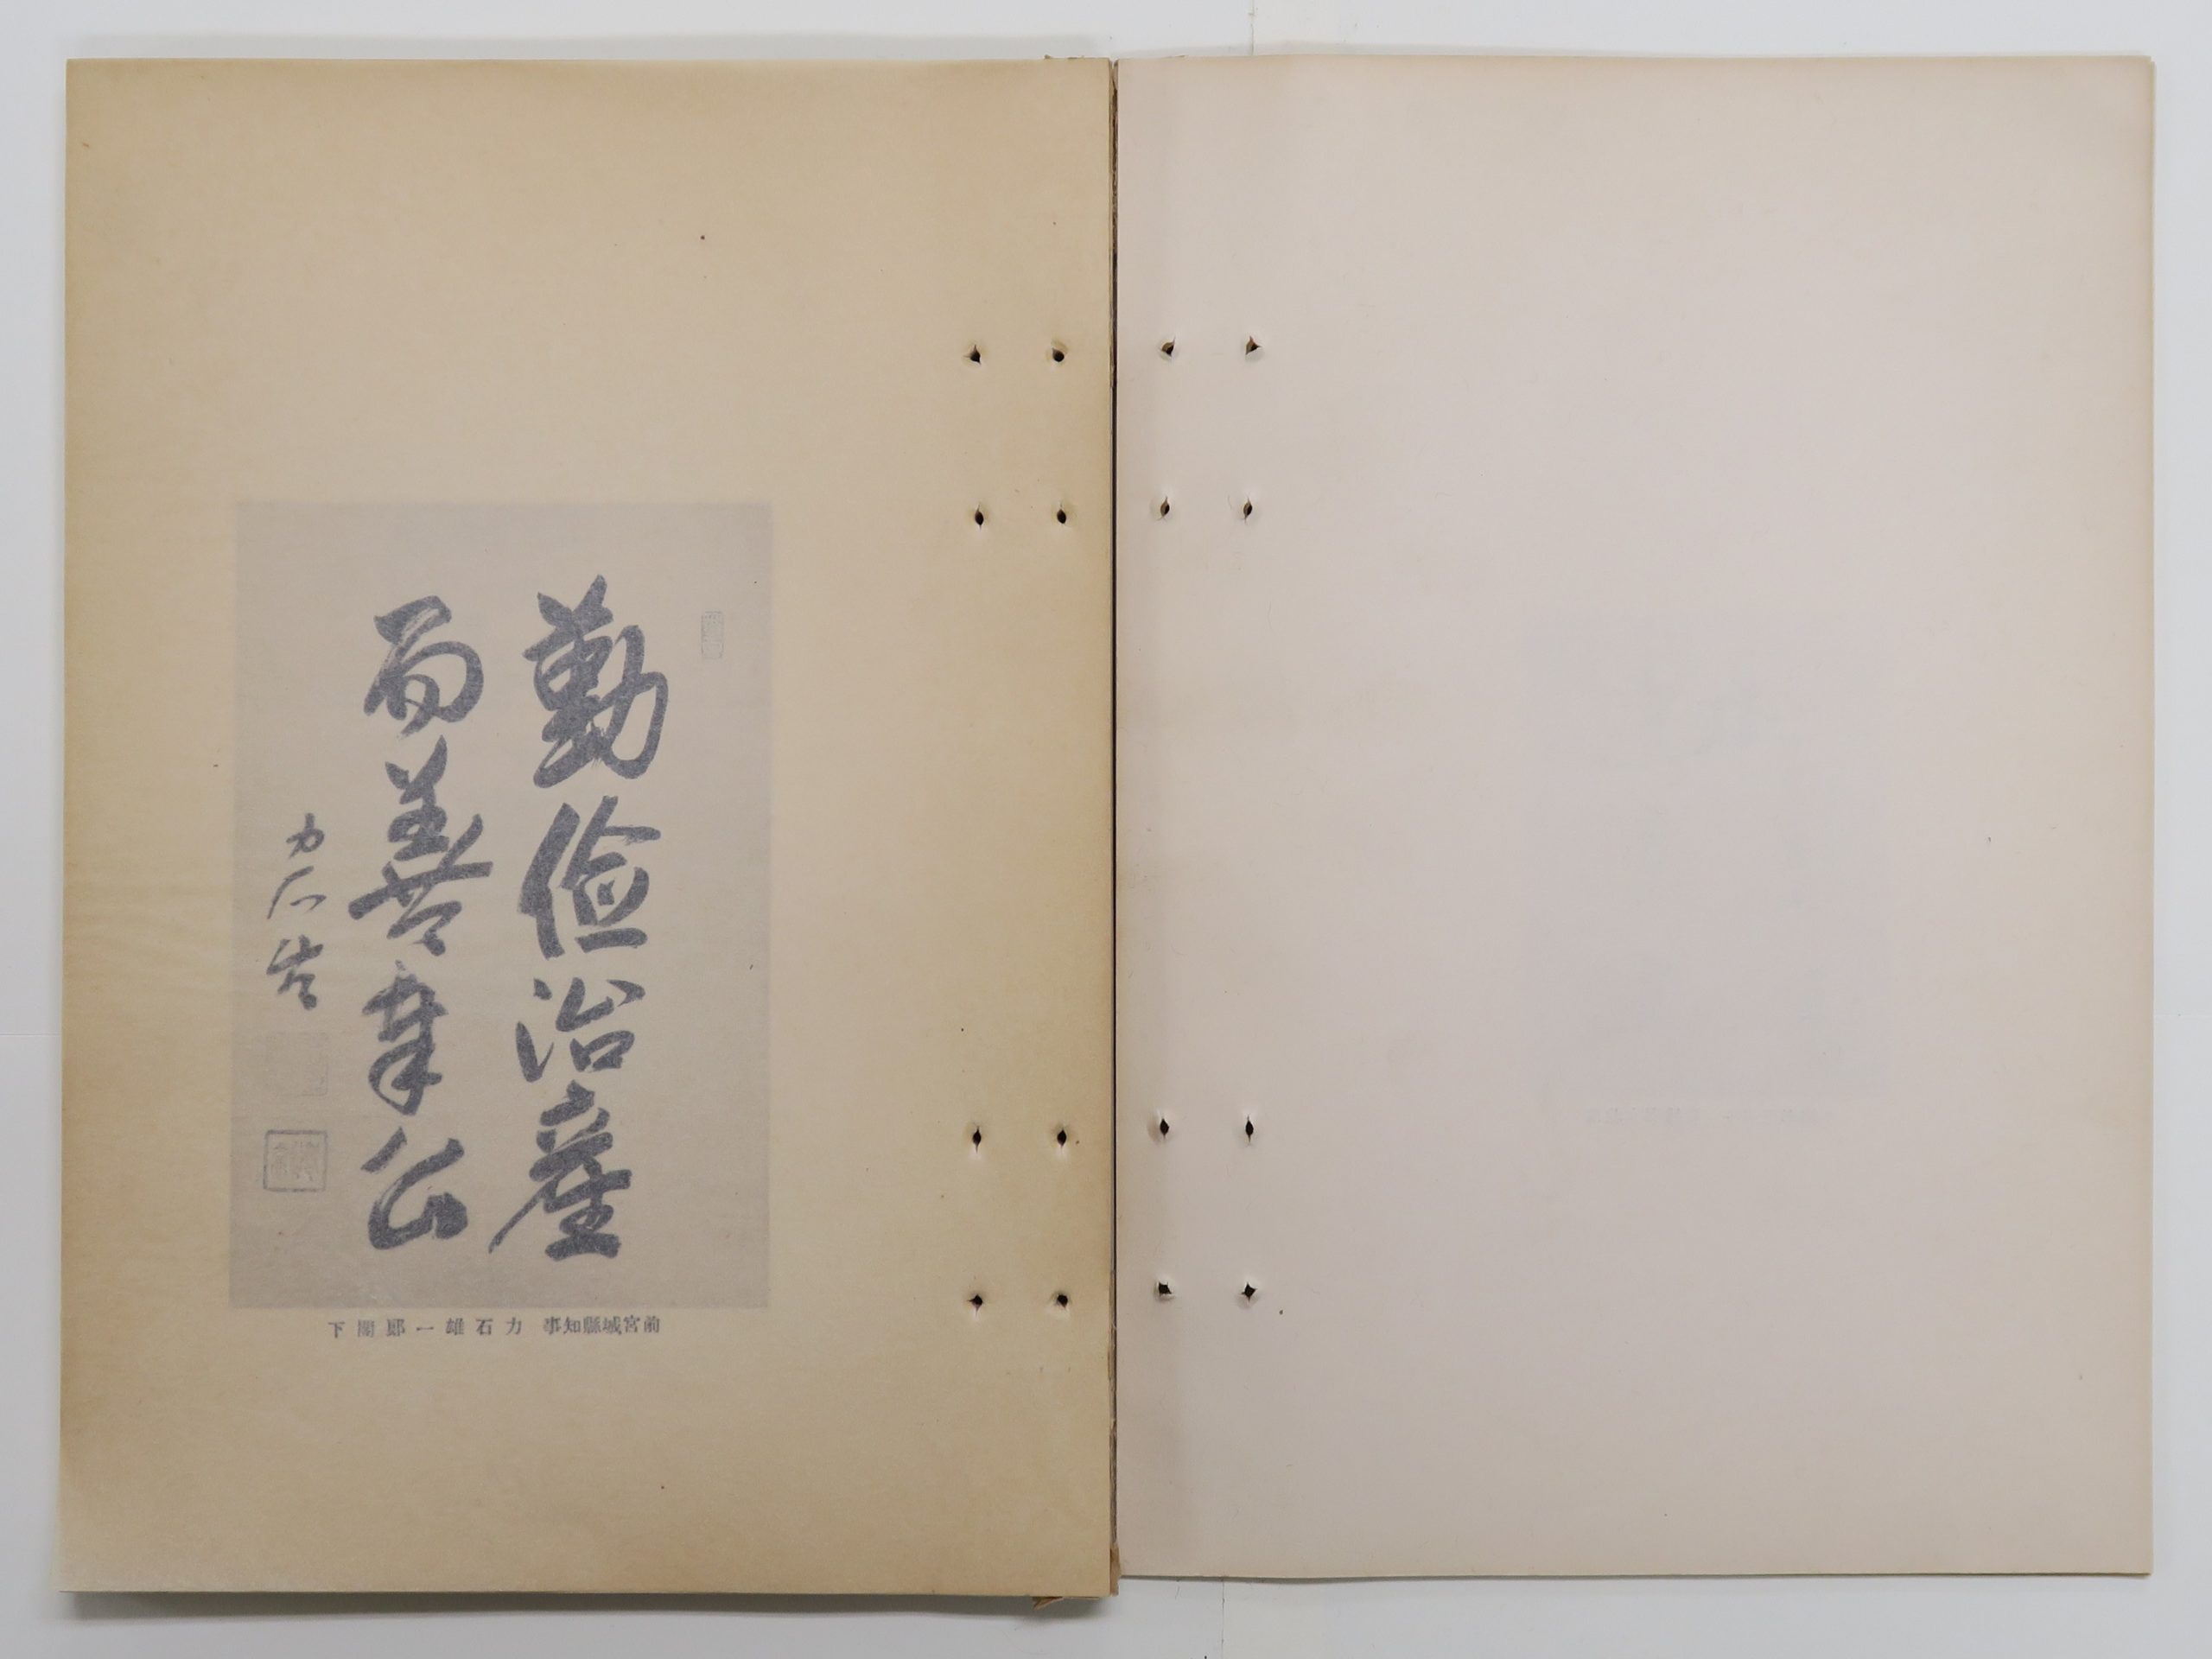 勤儉治産
而善奉公
力石
前宮城縣知事 力石雄一郎閣下